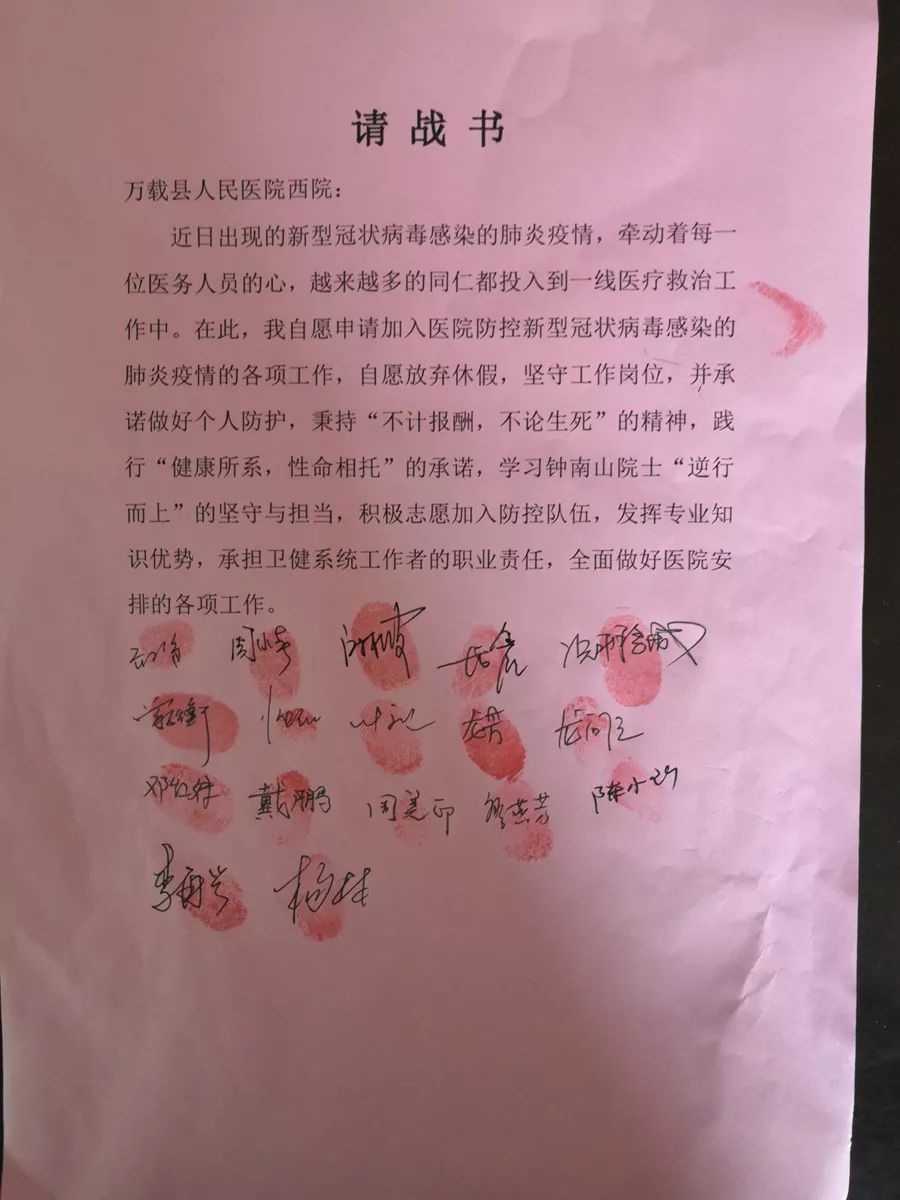 请战书
万载县人民医院西院：
近日出现的新型冠状病毒感染的肺炎疫情，牵动着每一
位医务人员的心，越来越多的同仁都投入到一线医疗救治工
作中。在此，我自愿申请加入医院防控新型冠状病毒感染的
肺炎疫情的各项工作，自愿放弃休假，坚守工作岗位，并承
诺做好个人防护，秉持“不计报酬，不论生死”的精神，践
行“健康所系，性命相托”的承诺，学习钟南山院士“逆行
而上”的坚守与担当，积极志愿加入防控队伍，发挥专业知
识优势，承担卫健系统工作者的职业责任，全面做好医院安
排的各项工作。
戴鹏 廖燕芳
杨林